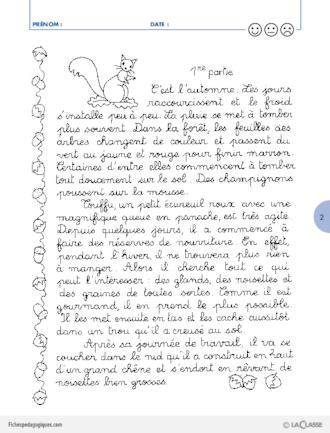 PRÉNOM :
DATE :
1re partie
C'est l'automne. Les jours
raccourcissent et le froid
s'installe peu à peu. La pluie se met à tomber
plus souvent. Dans la forêt, les feuilles des
arbres changent de couleur et passent du
vert au jaune et rouge pour finir marron.
Certaines d'entre elles commencent à tomber
tout doucement sur le sol. Des champignons
poussent sur la mousse.
Touffu, un petit écureuil roux avec une
magnifique queue en panache, est très agité.
Depuis quelques jours, il a commencé à
faire des réserves de nourriture. En effet,
pendant l'hiver, il ne trouvera plus rien
à manger. Alors il cherche tout ce qui
peut l'intéresser : des glands, des noisettes et
des graines de toutes sortes. Comme il est
gourmand, il en prend le plus possible.
Il les met ensuite en tas et les cache aussitôt
dans un trou qu'il a creusé au sol.
Après sa journée de travail, il va se
coucher dans le nid qu'il a construit en haut
d'un grand chêne et s'endort en rêvant de
noisettes bien grosses.
2
Fichespedagogiques.com
© LA CLASSE